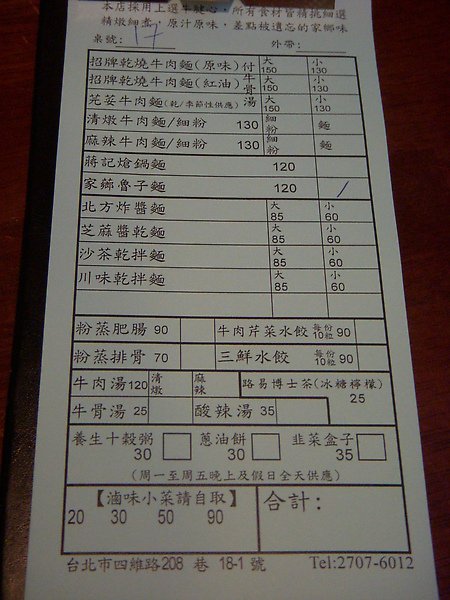 本店採用上選牛腱心，所有食材皆精挑細選
精燉細煮，原汁原味，差點被遺忘的家鄉味
桌號： 17 外帶：
招牌乾燒牛肉麵(原味) 付 大150 小130
招牌乾燒牛肉麵(紅油) 牛骨 大150 小130
芫荽牛肉麵(乾/季節性供應) 湯 大150 小130
清燉牛肉麵/細粉 130 細粉 麵
麻辣牛肉麵/細粉 130 細粉 麵
蔣記熗鍋麵 120
家薌魯子麵 120 /
北方炸醬麵 大85 小60
芝蔴醬乾麵 大85 小60
沙茶乾拌麵 大85 小60
川味乾拌麵 大85 小60
粉蒸肥腸 90 牛肉芹菜水餃 每份10粒 90
粉蒸排骨 70 三鮮水餃 每份10粒 90
牛肉湯120 清燉 麻辣 路易博士茶(冰糖檸檬) 25
牛骨湯 25 酸辣湯 35
養生十穀粥 30 蔥油餅 30 韭菜盒子 35
(周一至周五晚上及假日全天供應)
【滷味小菜請自取】 合計：
20 30 50 90
台北市四維路208 巷 18-1 號 Tel:2707-6012